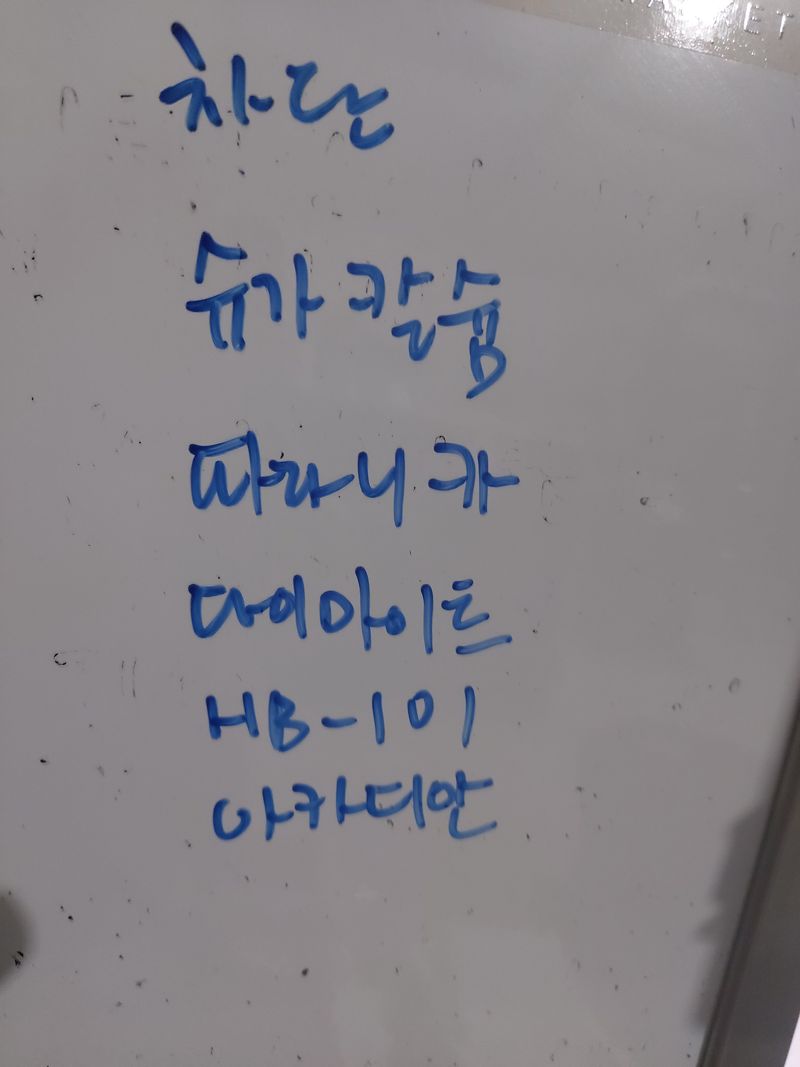 차단
슈가칼슘
파라니카
다이아이트
HB-101
아카디안